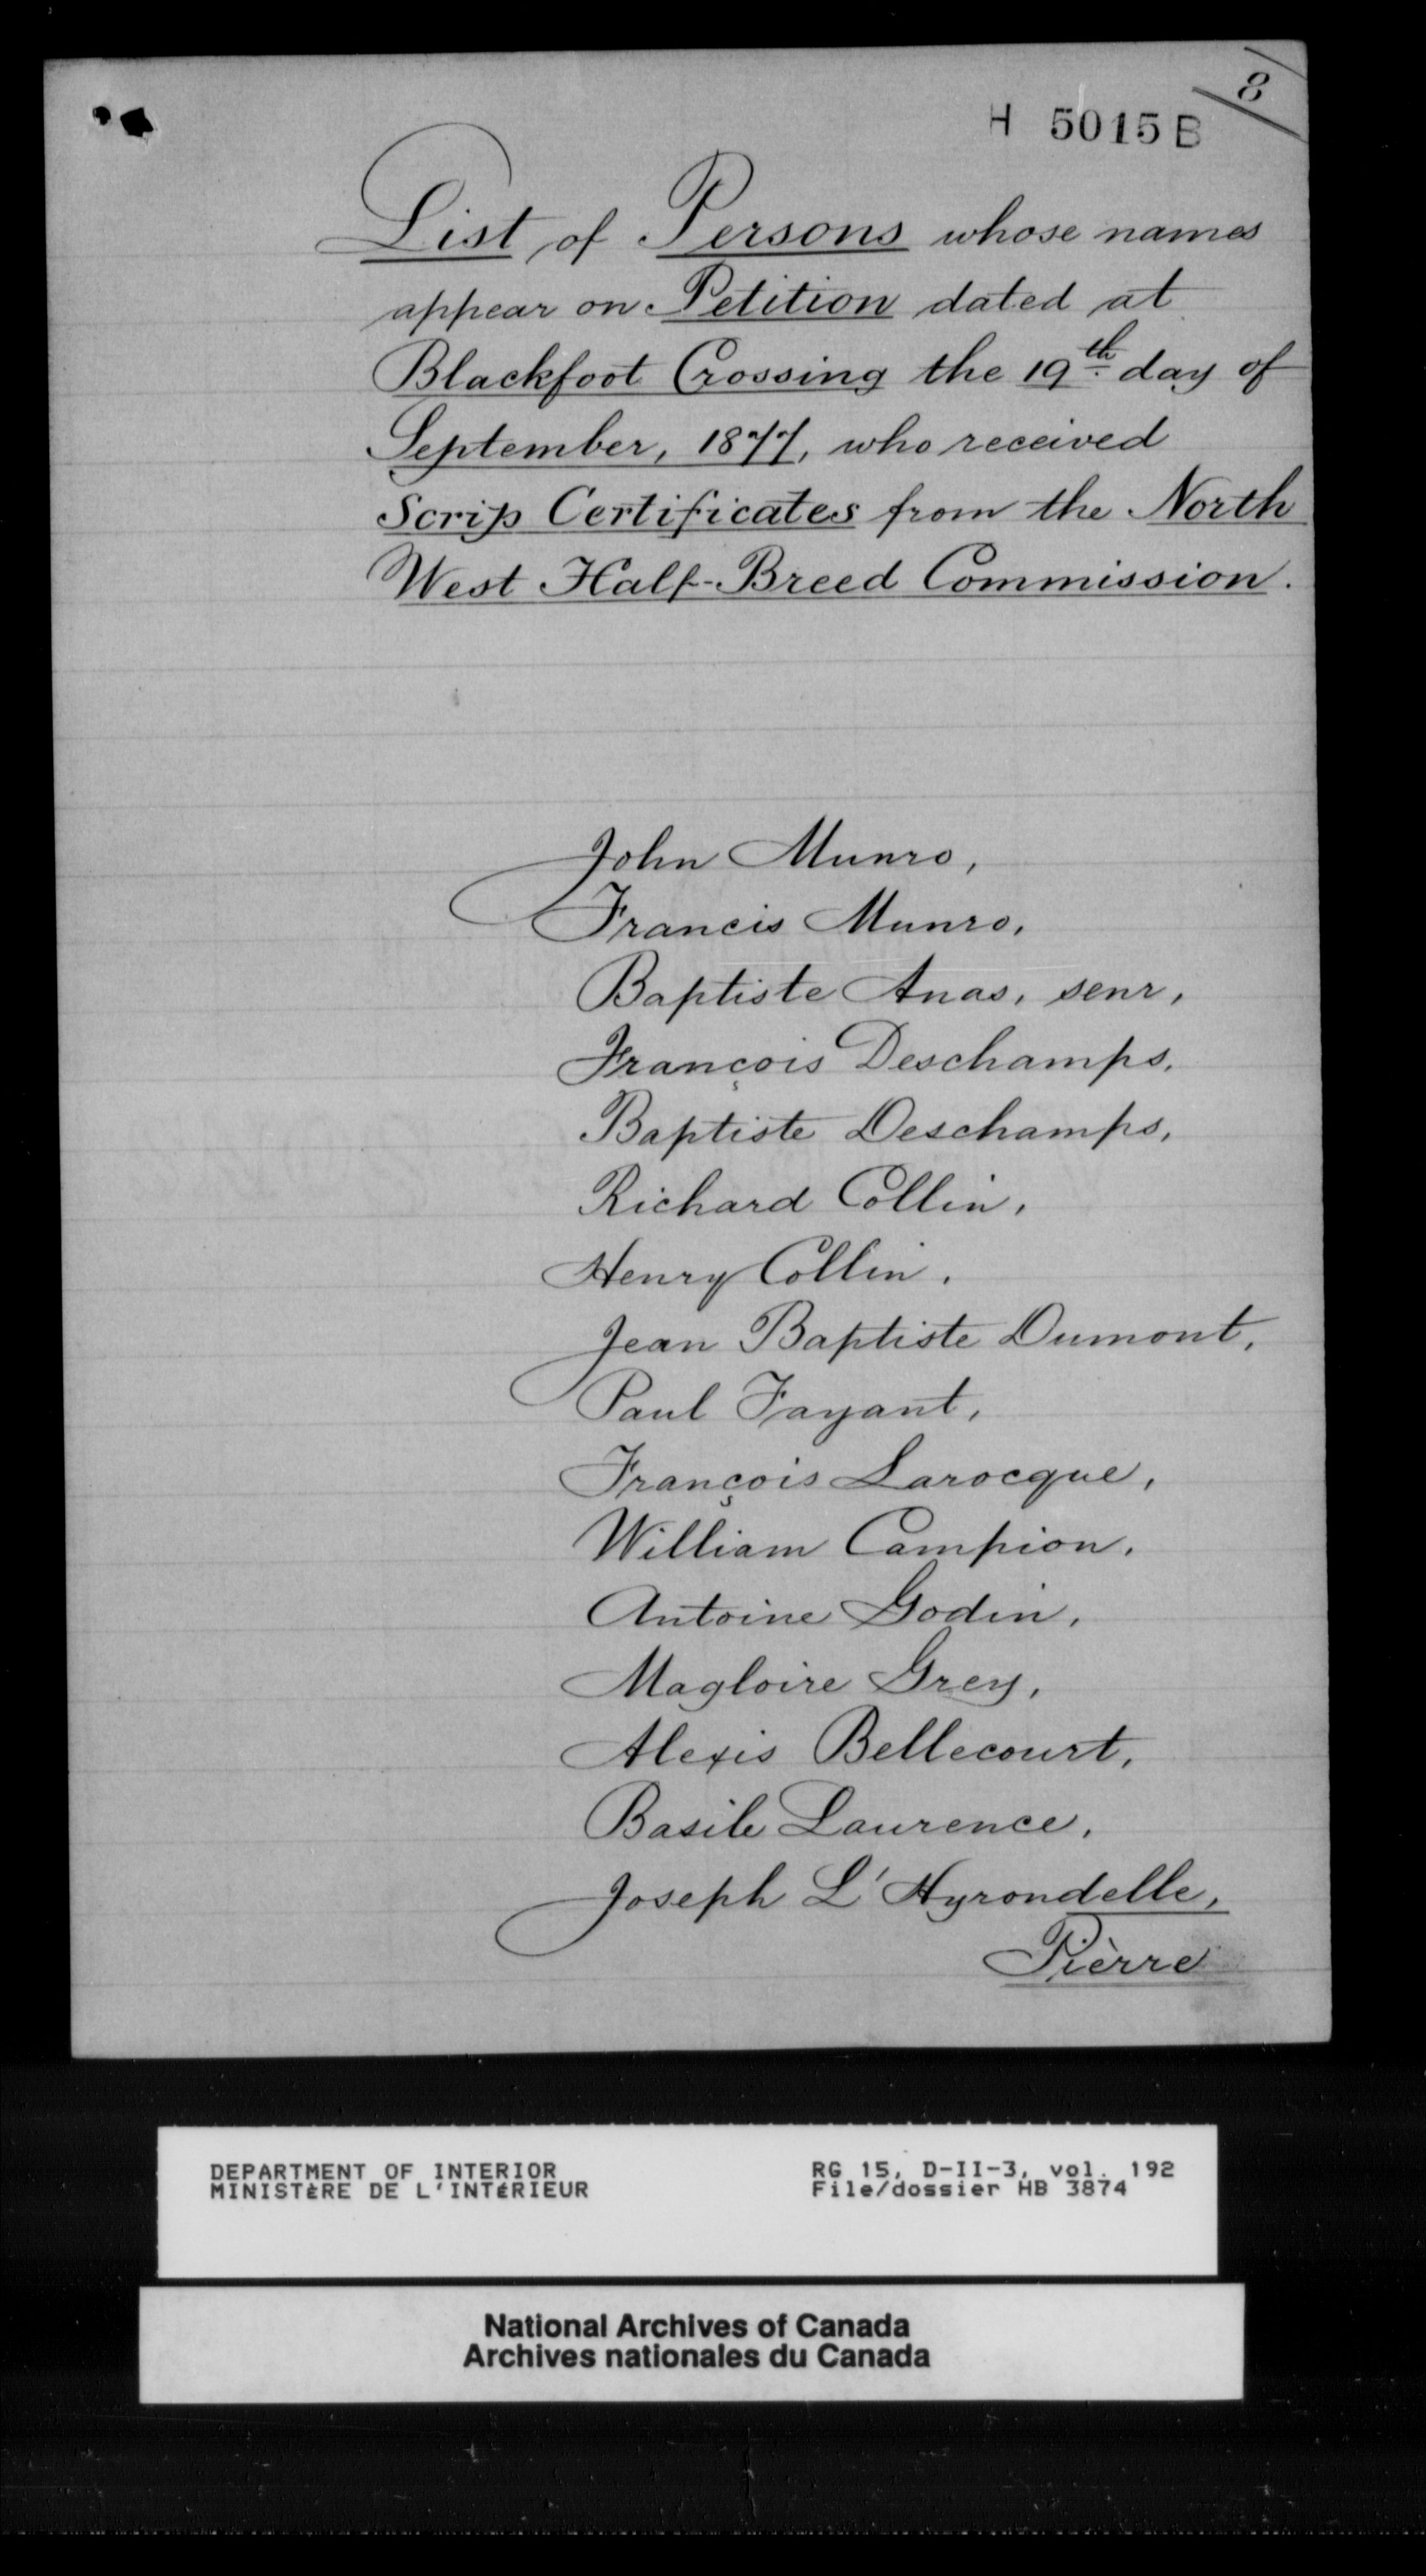 8
H 5015 B
List of Persons whose names
appear on Petition dated at
Blackfoot Crossing the 19th day of
September, 1877, who received
Scrip Certificates from the North
West Half-Breed Commission.
John Munro,
Francis Munro,
Baptiste Anas, senr,
François Deschamps,
Baptiste Deschamps,
Richard Collin,
Henry Collin,
Jean Baptiste Dumont,
Paul Fayant,
François Larocque,
William Campion,
Antoine Godin,
Magloire Grey,
Alexis Bellecourt,
Basile Laurence,
Joseph L'Hyrondelle,
Pièrre
DEPARTMENT OF INTERIOR RG 15, D-II-3, vol. 192
MINISTÈRE DE L'INTÉRIEUR File/dossier HB 3874
National Archives of Canada
Archives nationales du Canada